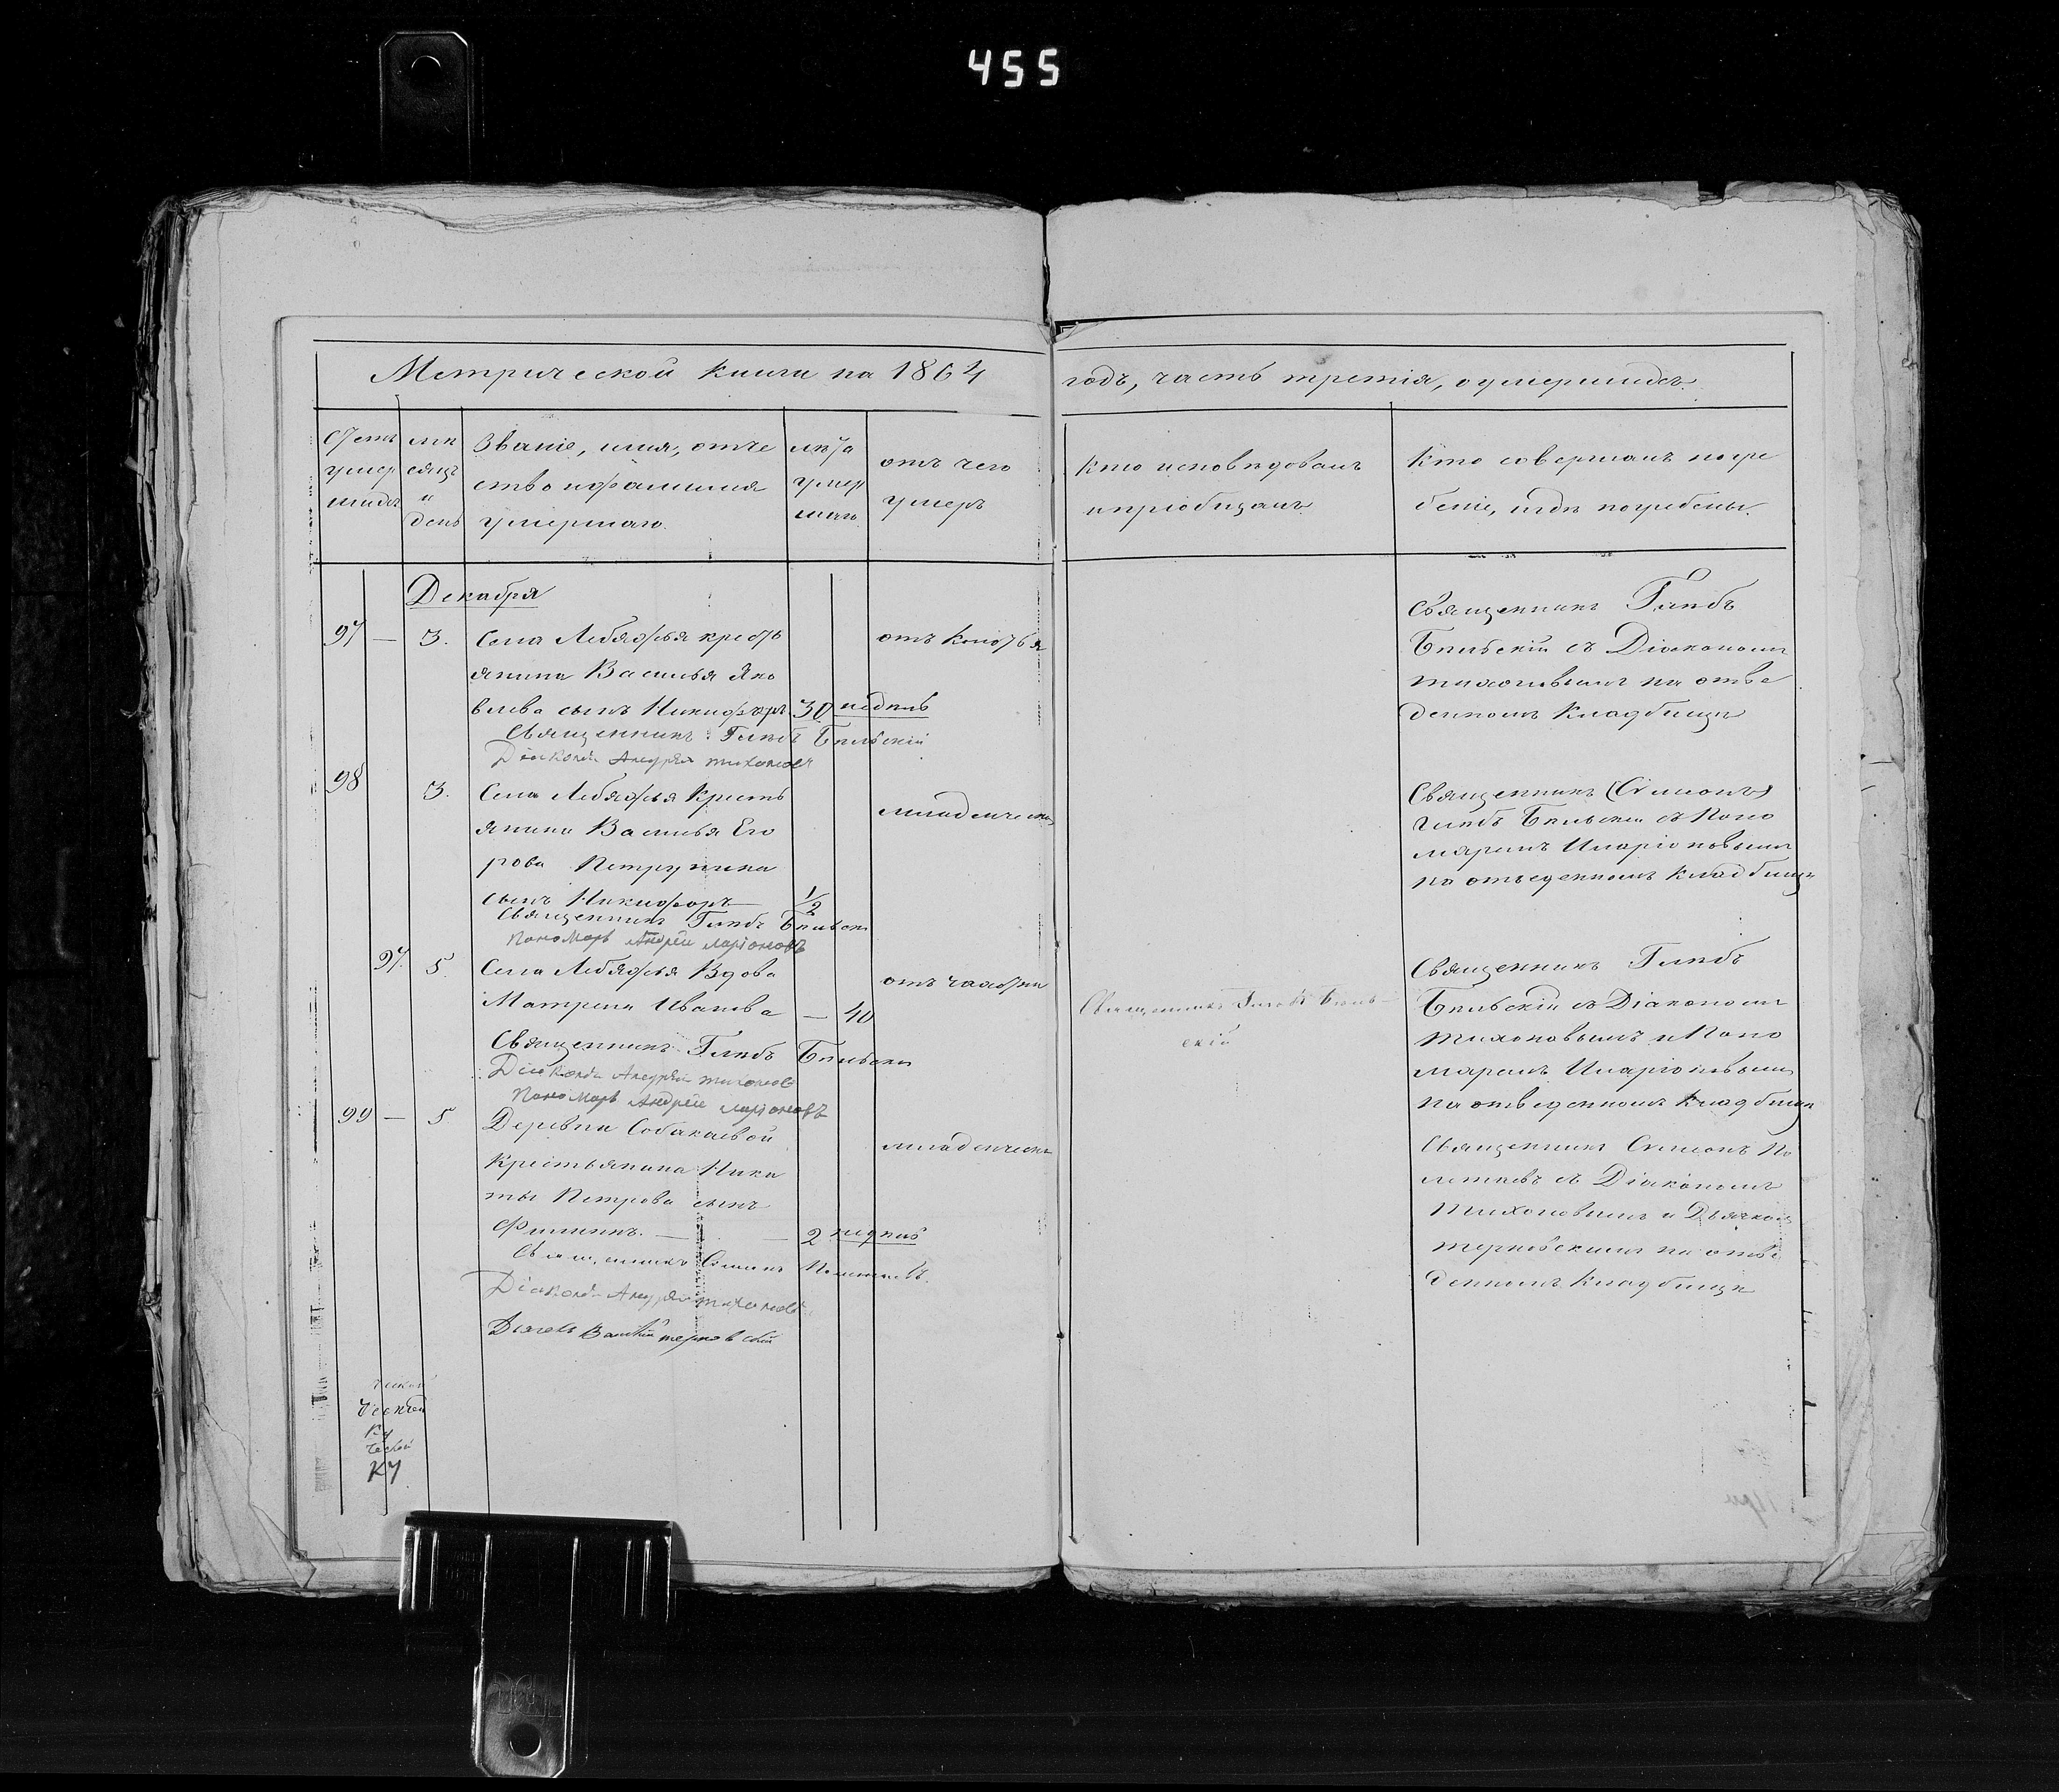 455
Метрической книги на 1864
годъ, часть третія, о умершихъ.
Счетъ умершихъ
мѣсяцъ и день
Званіе, имя, отче
ство и фамилія
умершаго.
лѣта умершаго
отъ чего
умеръ
кто исповѣдовалъ
и пріобщалъ
Кто совершалъ погре
беніе, и гдѣ погребены.
Декабря
97 — 3. Села Лебяжья кресть
янина Василья Яко
влева сынъ Никифоръ 30 недѣль
отъ
Священникъ Глѣбъ Бѣльскій
Діаконъ Андрей Тихоновъ
Священникъ Глѣбъ
Бѣльскій съ Діакономъ
Тихоновымъ на отве
денномъ кладбищѣ
98 3. Села Лебяжья Кресть
янина Василья Его
рова Петрунина
сынъ Никифоръ 1/2
младенческ
Священникъ Глѣбъ Бѣльскій
Пономарь Андрей Ларіоновъ
Священникъ (Симеонъ)
Глѣбъ Бѣльскій съ Поно
маремъ Иларіоновымъ
на отведенномъ кладбищѣ
97. 5. Села Лебяжья Вдова
Матрена Иванова — 40
отъ чахотки
Священникъ Глѣбъ Бѣльскій
Діаконъ Андрей Тихоновъ
Пономарь Андрей Ларіоновъ
Священникъ Глѣбъ Бѣль-
скій
Священникъ Глѣбъ
Бѣльскій съ Діакономъ
Тихоновымъ и Поно
маремъ Иларіоновымъ
на отведенномъ кладбищѣ
99 — 5 Деревни Собакаевой
Крестьянина Ники
ты Петрова сынъ
Филиппъ. — 2 недѣль
младенческ
Священникъ Симеонъ Полетаевъ.
Діаконъ Андрей Тихоновъ
Дьячекъ Василій Терновскій
Священникъ Симеонъ По
летаевъ съ Діакономъ
Тихоновымъ и Дьячком
Терновскимъ на отве
денномъ кладбищѣ
КУ